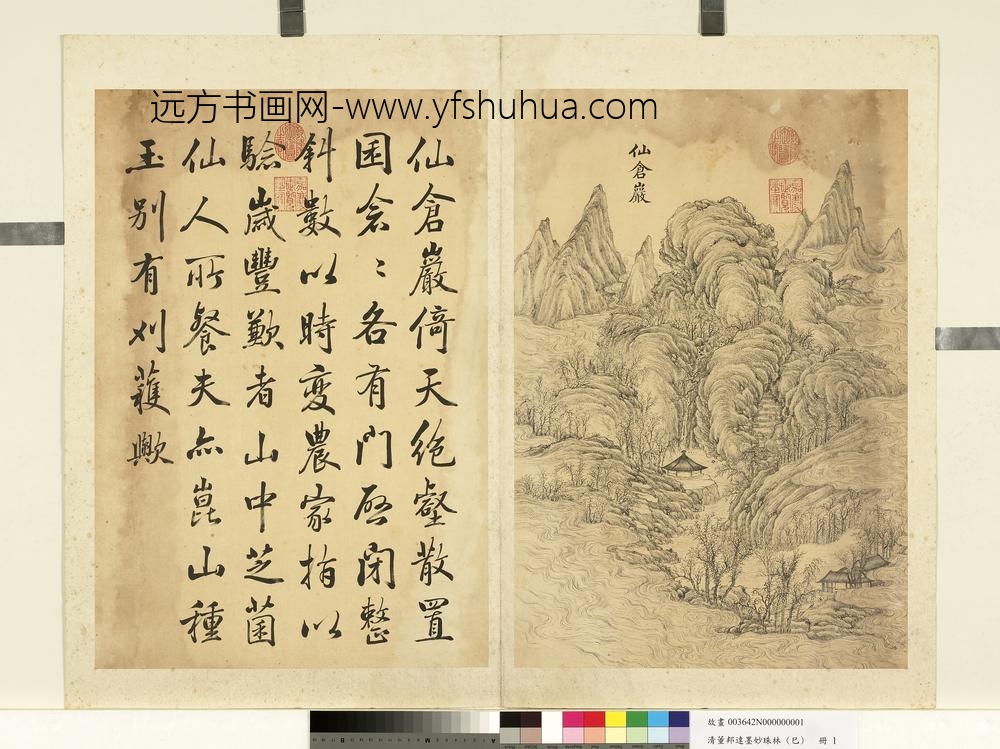 远方书画网-www.yfshuhua.com
仙倉巖
仙倉巖倚天絶壑散置
囷倉〻各有門啓閉整
斜數以時變農家指以
驗歲豐歉者山中芝菌
仙人所餐夫亦崑山種
玉別有刈蘐歟
故畫 003642N000000001
清董邦達墨妙珠林（巳） 冊 1